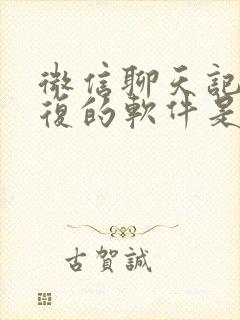 微信聊天記
復的軟件是
古賀誠